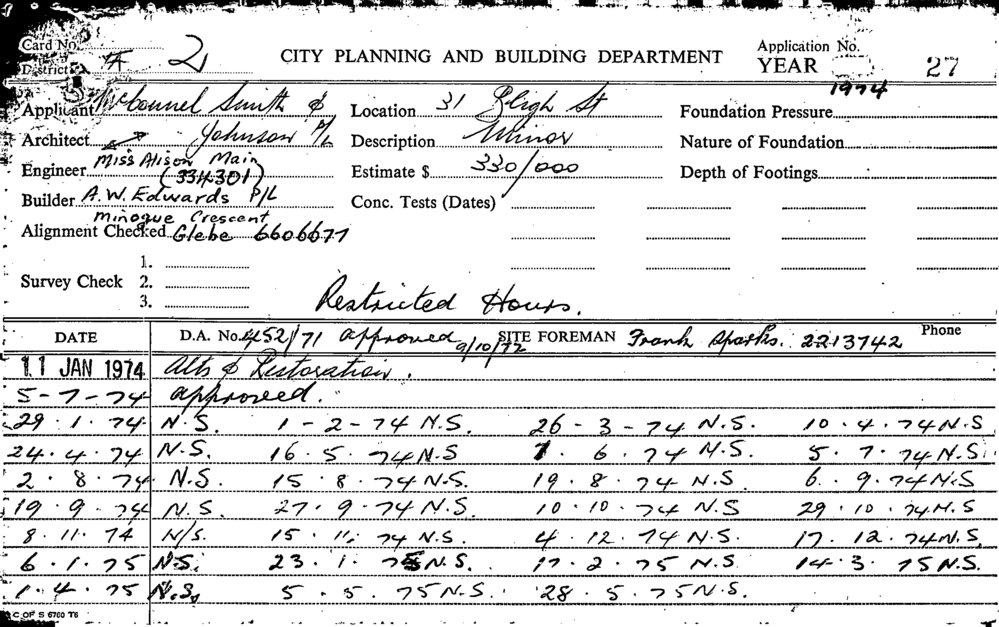 Card No. 2 CITY PLANNING AND BUILDING DEPARTMENT Application No.
District A YEAR 1974 27
Applicant McConnel Smith & Location 31 Bligh St Foundation Pressure
Architect Johnson P/L Description Minor Nature of Foundation
Engineer Miss Alison Main (334301) Estimate $ 330/000 Depth of Footings
Builder A.W. Edwards P/L Conc. Tests (Dates)
Minogue Crescent
Alignment Checked Glebe 6606677
1.
Survey Check 2.
3.
Restricted Hours.
DATE D.A. No. 452/71 approved 9/10/72 SITE FOREMAN Frank Sparks. 2213742 Phone
11 JAN 1974 Alts & Restoration.
5-7-74 approved.
29.1.74 N.S. 1-2-74 N.S. 26-3-74 N.S. 10.4.74 N.S
24.4.74 N.S. 16.5.74 N.S 7.6.74 N.S. 5.7.74 N.S.
2.8.74 N.S. 15.8.74 N.S. 19.8.74 N.S. 6.9.74 N.S
19.9.74 N.S. 27.9.74 N.S. 10.10.74 N.S 29.10.74 N.S
8.11.74 N/S. 15.11.74 N.S. 4.12.74 N.S. 17.12.74 N.S.
6.1.75 N.S. 23.1.75 N.S. 17.2.75 N.S. 14.3.75 N.S.
1.4.75 N.S. 5.5.75 N.S. 28.5.75 N.S.
C OF S 6760 76